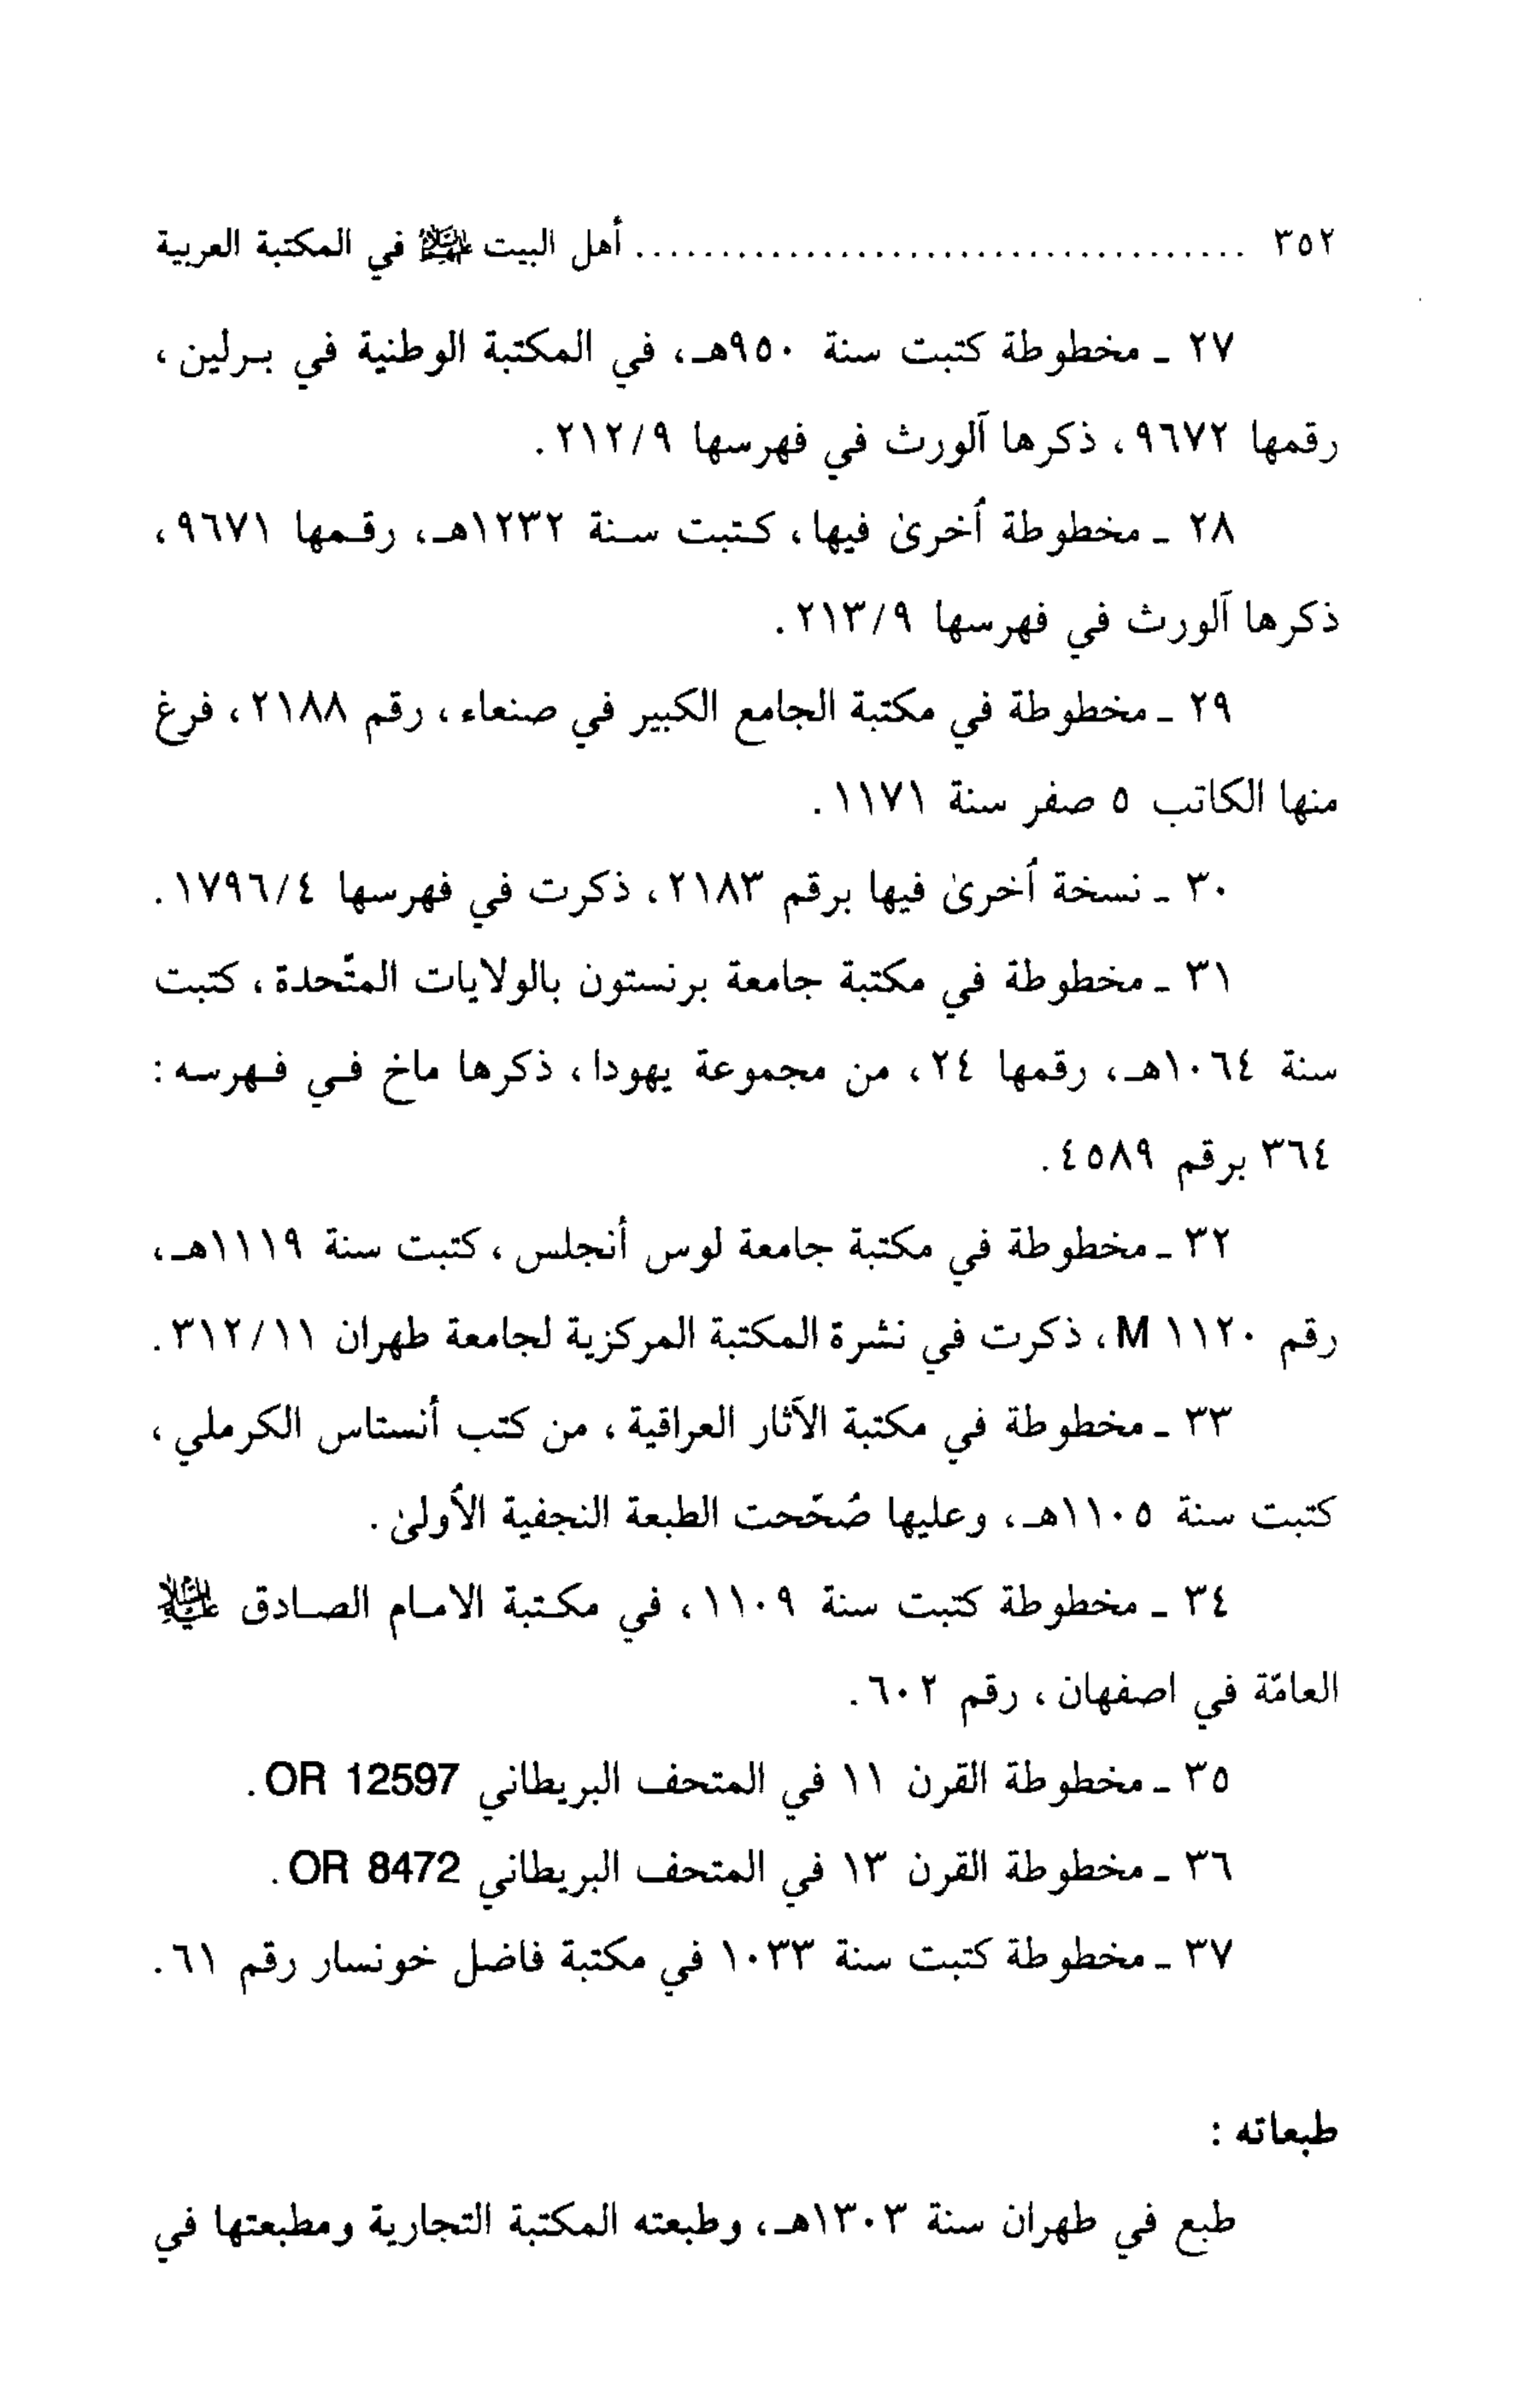 ٣٥٢ ..................................... أهل البيت عليهم السلام في المكتبة العربية
٢٧ ـ مخطوطة كتبت سنة ٩٥٠هـ، في المكتبة الوطنية في برلين،
رقمها ٩٦٧٢، ذكرها آلورث في فهرسها ٢١٢/٩.
٢٨ ـ مخطوطة أُخرىٰ فيها، كتبت سنة ١٢٣٢هـ، رقمها ٩٦٧١،
ذكرها آلورث في فهرسها ٢١٣/٩.
٢٩ ـ مخطوطة في مكتبة الجامع الكبير في صنعاء، رقم ٢١٨٨، فرغ
منها الكاتب ٥ صفر سنة ١١٧١.
٣٠ ـ نسخة أُخرىٰ فيها برقم ٢١٨٣، ذكرت في فهرسها ١٧٩٦/٤.
٣١ ـ مخطوطة في مكتبة جامعة برنستون بالولايات المتّحدة، كتبت
سنة ١٠٦٤هـ، رقمها ٢٤، من مجموعة يهودا، ذكرها ماخ في فهرسه:
٣٦٤ برقم ٤٥٨٩.
٣٢ ـ مخطوطة في مكتبة جامعة لوس أنجلس، كتبت سنة ١١١٩هـ،
رقم ١١٢٠ M، ذكرت في نشرة المكتبة المركزية لجامعة طهران ٣١٢/١١.
٣٣ ـ مخطوطة في مكتبة الآثار العراقية، من كتب أنستاس الكرملي،
كتبت سنة ١١٠٥هـ، وعليها صُحّحت الطبعة النجفية الأُولىٰ.
٣٤ ـ مخطوطة كتبت سنة ١١٠٩، في مكتبة الامام الصادق عليه السلام
العامّة في اصفهان، رقم ٦٠٢.
٣٥ ـ مخطوطة القرن ١١ في المتحف البريطاني OR 12597.
٣٦ ـ مخطوطة القرن ١٣ في المتحف البريطاني OR 8472.
٣٧ ـ مخطوطة كتبت سنة ١٠٣٣ في مكتبة فاضل خونسار رقم ٦١.
طبعاته :
طبع في طهران سنة ١٣٠٣هـ، وطبعته المكتبة التجارية ومطبعتها في